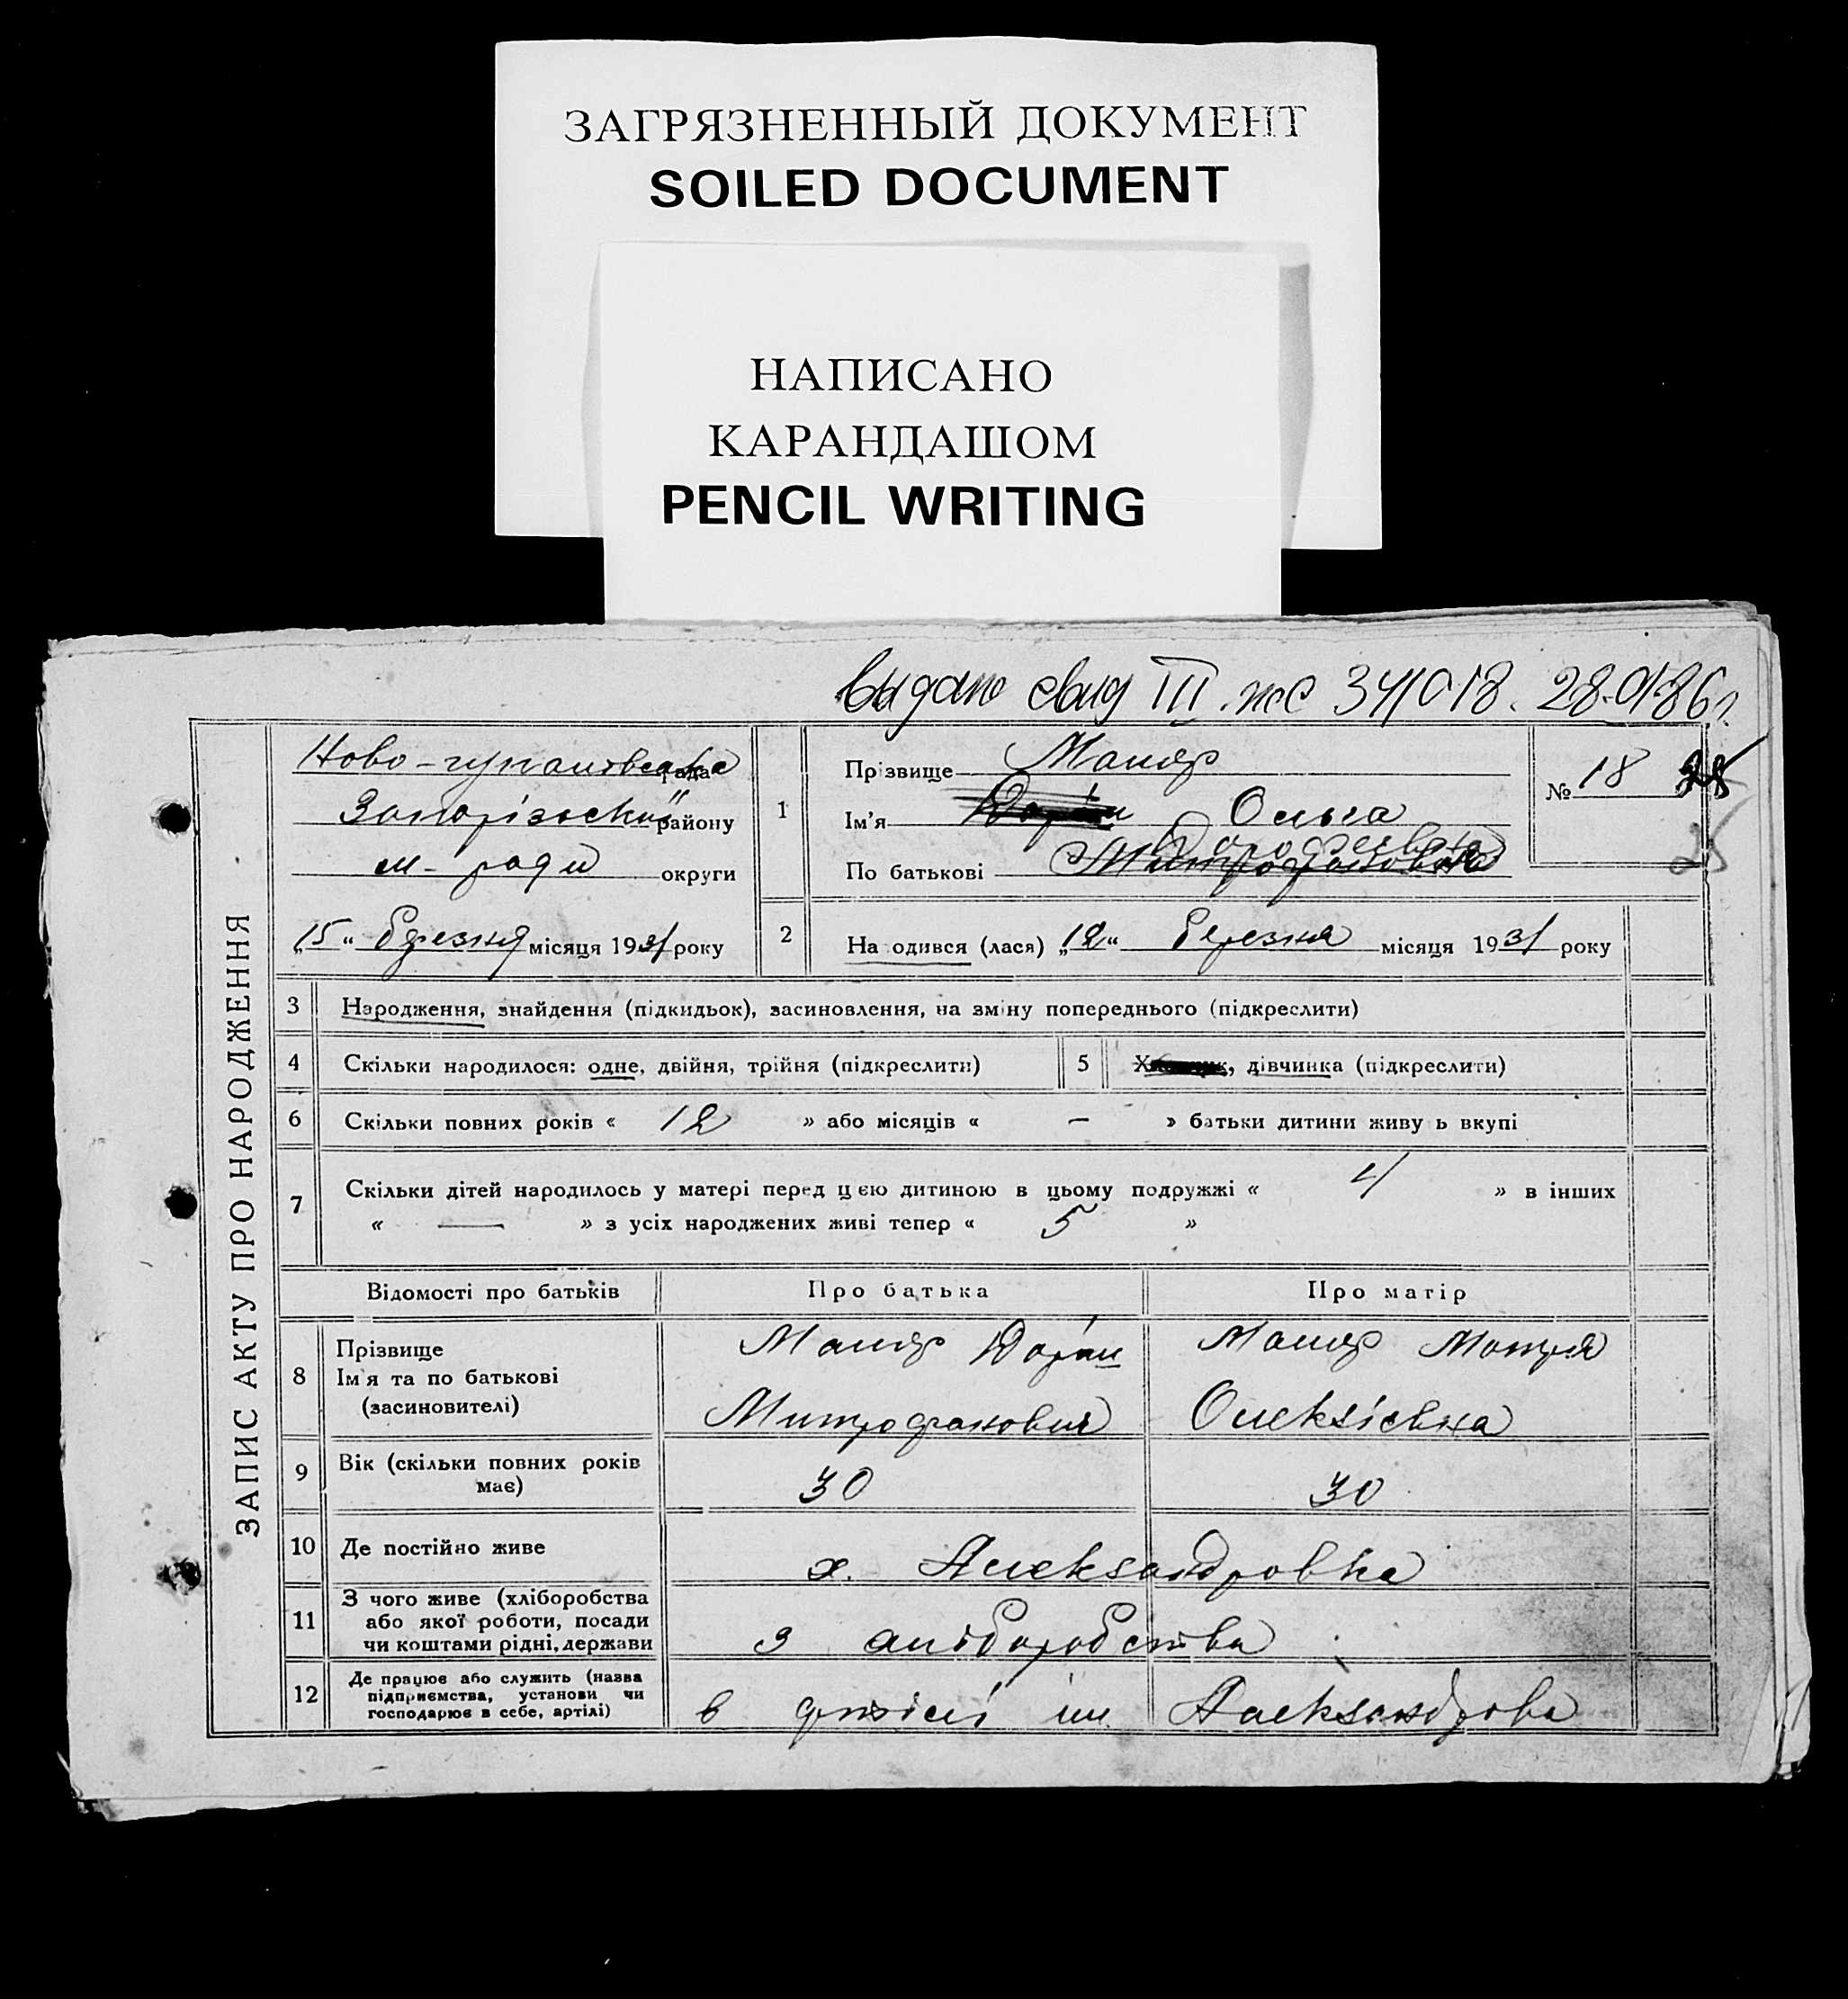 ЗАГРЯЗНЕННЫЙ ДОКУМЕНТ
SOILED DOCUMENT
НАПИСАНО
КАРАНДАШОМ
PENCIL WRITING
выдано свид III жс 341018. 28-01-86г.
ЗАПИС АКТУ ПРО НАРОДЖЕННЯ
рада
Запорізської району
м-ради округи
„15“ березня місяця 1931 року
1
Прізвище Маляр
Ім'я Ольга
По батькові Митрофановна
№ 18
25
2 На одився (лася) „12“ березня місяця 1931 року
3 Народження, знайдення (підкидьок), засиновлення, на зміну попереднього (підкреслити)
4 Скільки народилося: одне, двійня, трійня (підкреслити)
5 дівчинка (підкреслити)
6 Скільки повних років « 12 » або місяців « — » батьки дитини живу ь вкупі
7 Скільки дітей народилось у матері перед цією дитиною в цьому подружжі « 4 » в інших
« — » з усіх народжених живі тепер « 5 »
Відомості про батьків Про батька Про матір
8 Прізвище
Ім'я та по батькові
(засиновителі)
Маляр
Митрофанович
Маляр Мотря
Олексієвна
9 Вік (скільки повних років має) 30 30
10 Де постійно живе х. Александровка
11 З чого живе (хліборобства
або якої роботи, посади
чи коштами рідні, держави
з хліборобства
12 Де працює або служить (назва
підприємства, установи чи
господарює в себе, артілі)
в артілі ім.